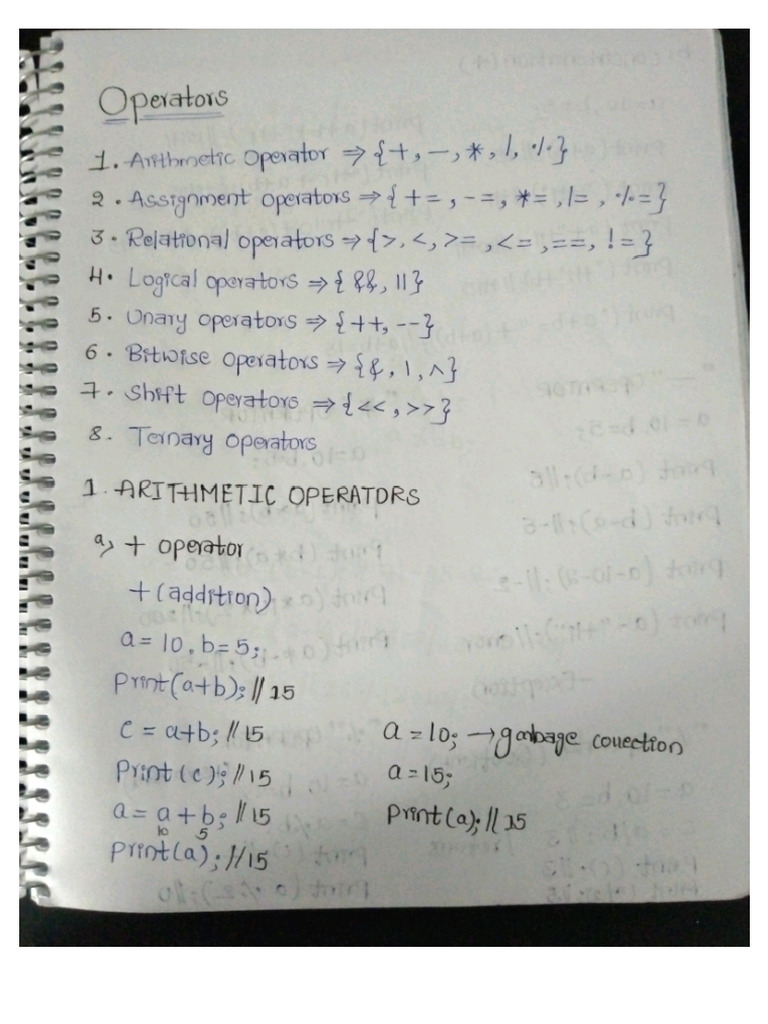 Operators
1. Arithmetic Operator ⇒ {+, -, *, /, %}
2. Assignment Operators ⇒ {+=, -=, *=, /=, %=}
3. Relational Operators ⇒ {>, <, >=, <=, ==, !=}
4. Logical Operators ⇒ {&&, ||}
5. Unary Operators ⇒ {++, --}
6. Bitwise Operators ⇒ {&, |, ^}
7. Shift Operators ⇒ {<<, >>}
8. Ternary Operators
1. ARITHMETIC OPERATORS
a) + operator
+ (addition)
a = 10, b = 5;
Print(a+b); // 15
c = a+b; // 15
Print(c); // 15
a = a + b; // 15
10 5
Print(a); // 15
a = 10; → garbage collection
a = 15;
Print(a); // 15